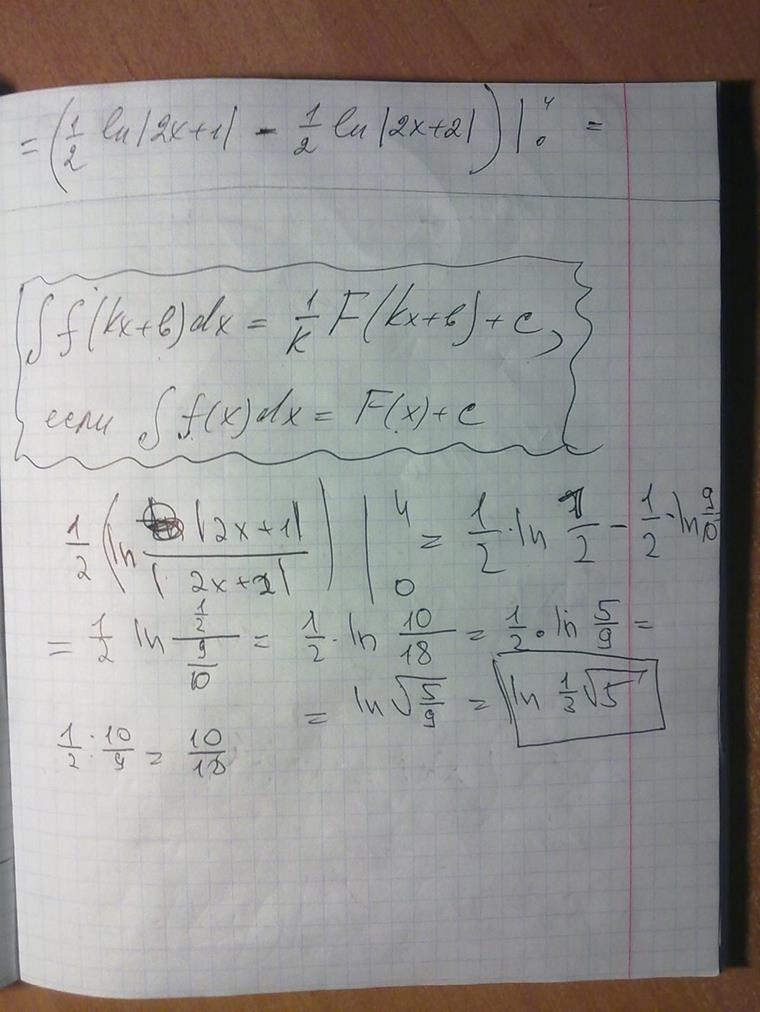 = (1/2 ln|2x+1| - 1/2 ln|2x+2|) |₀⁴ =
∫ f(kx+b)dx = 1/k F(kx+b)+c,
если ∫ f(x)dx = F(x)+c
1/2 (ln |2x+1| / |2x+2|) |₀⁴ = 1/2 · ln 1/2 - 1/2 · ln 9/10
= 1/2 ln (1/2)/(9/10) = 1/2 · ln 10/18 = 1/2 · ln 5/9 =
= ln √(5/9) = ln 1/3 √5
1/2 · 10/9 = 10/18